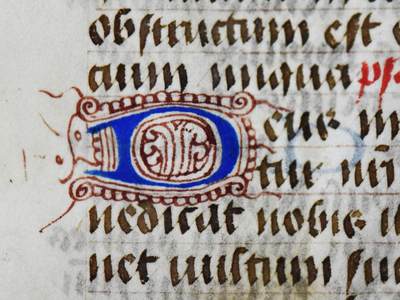 obstructum est o
cium iniqua ps
Deus m
tur
nedicat nobis
net vultum su